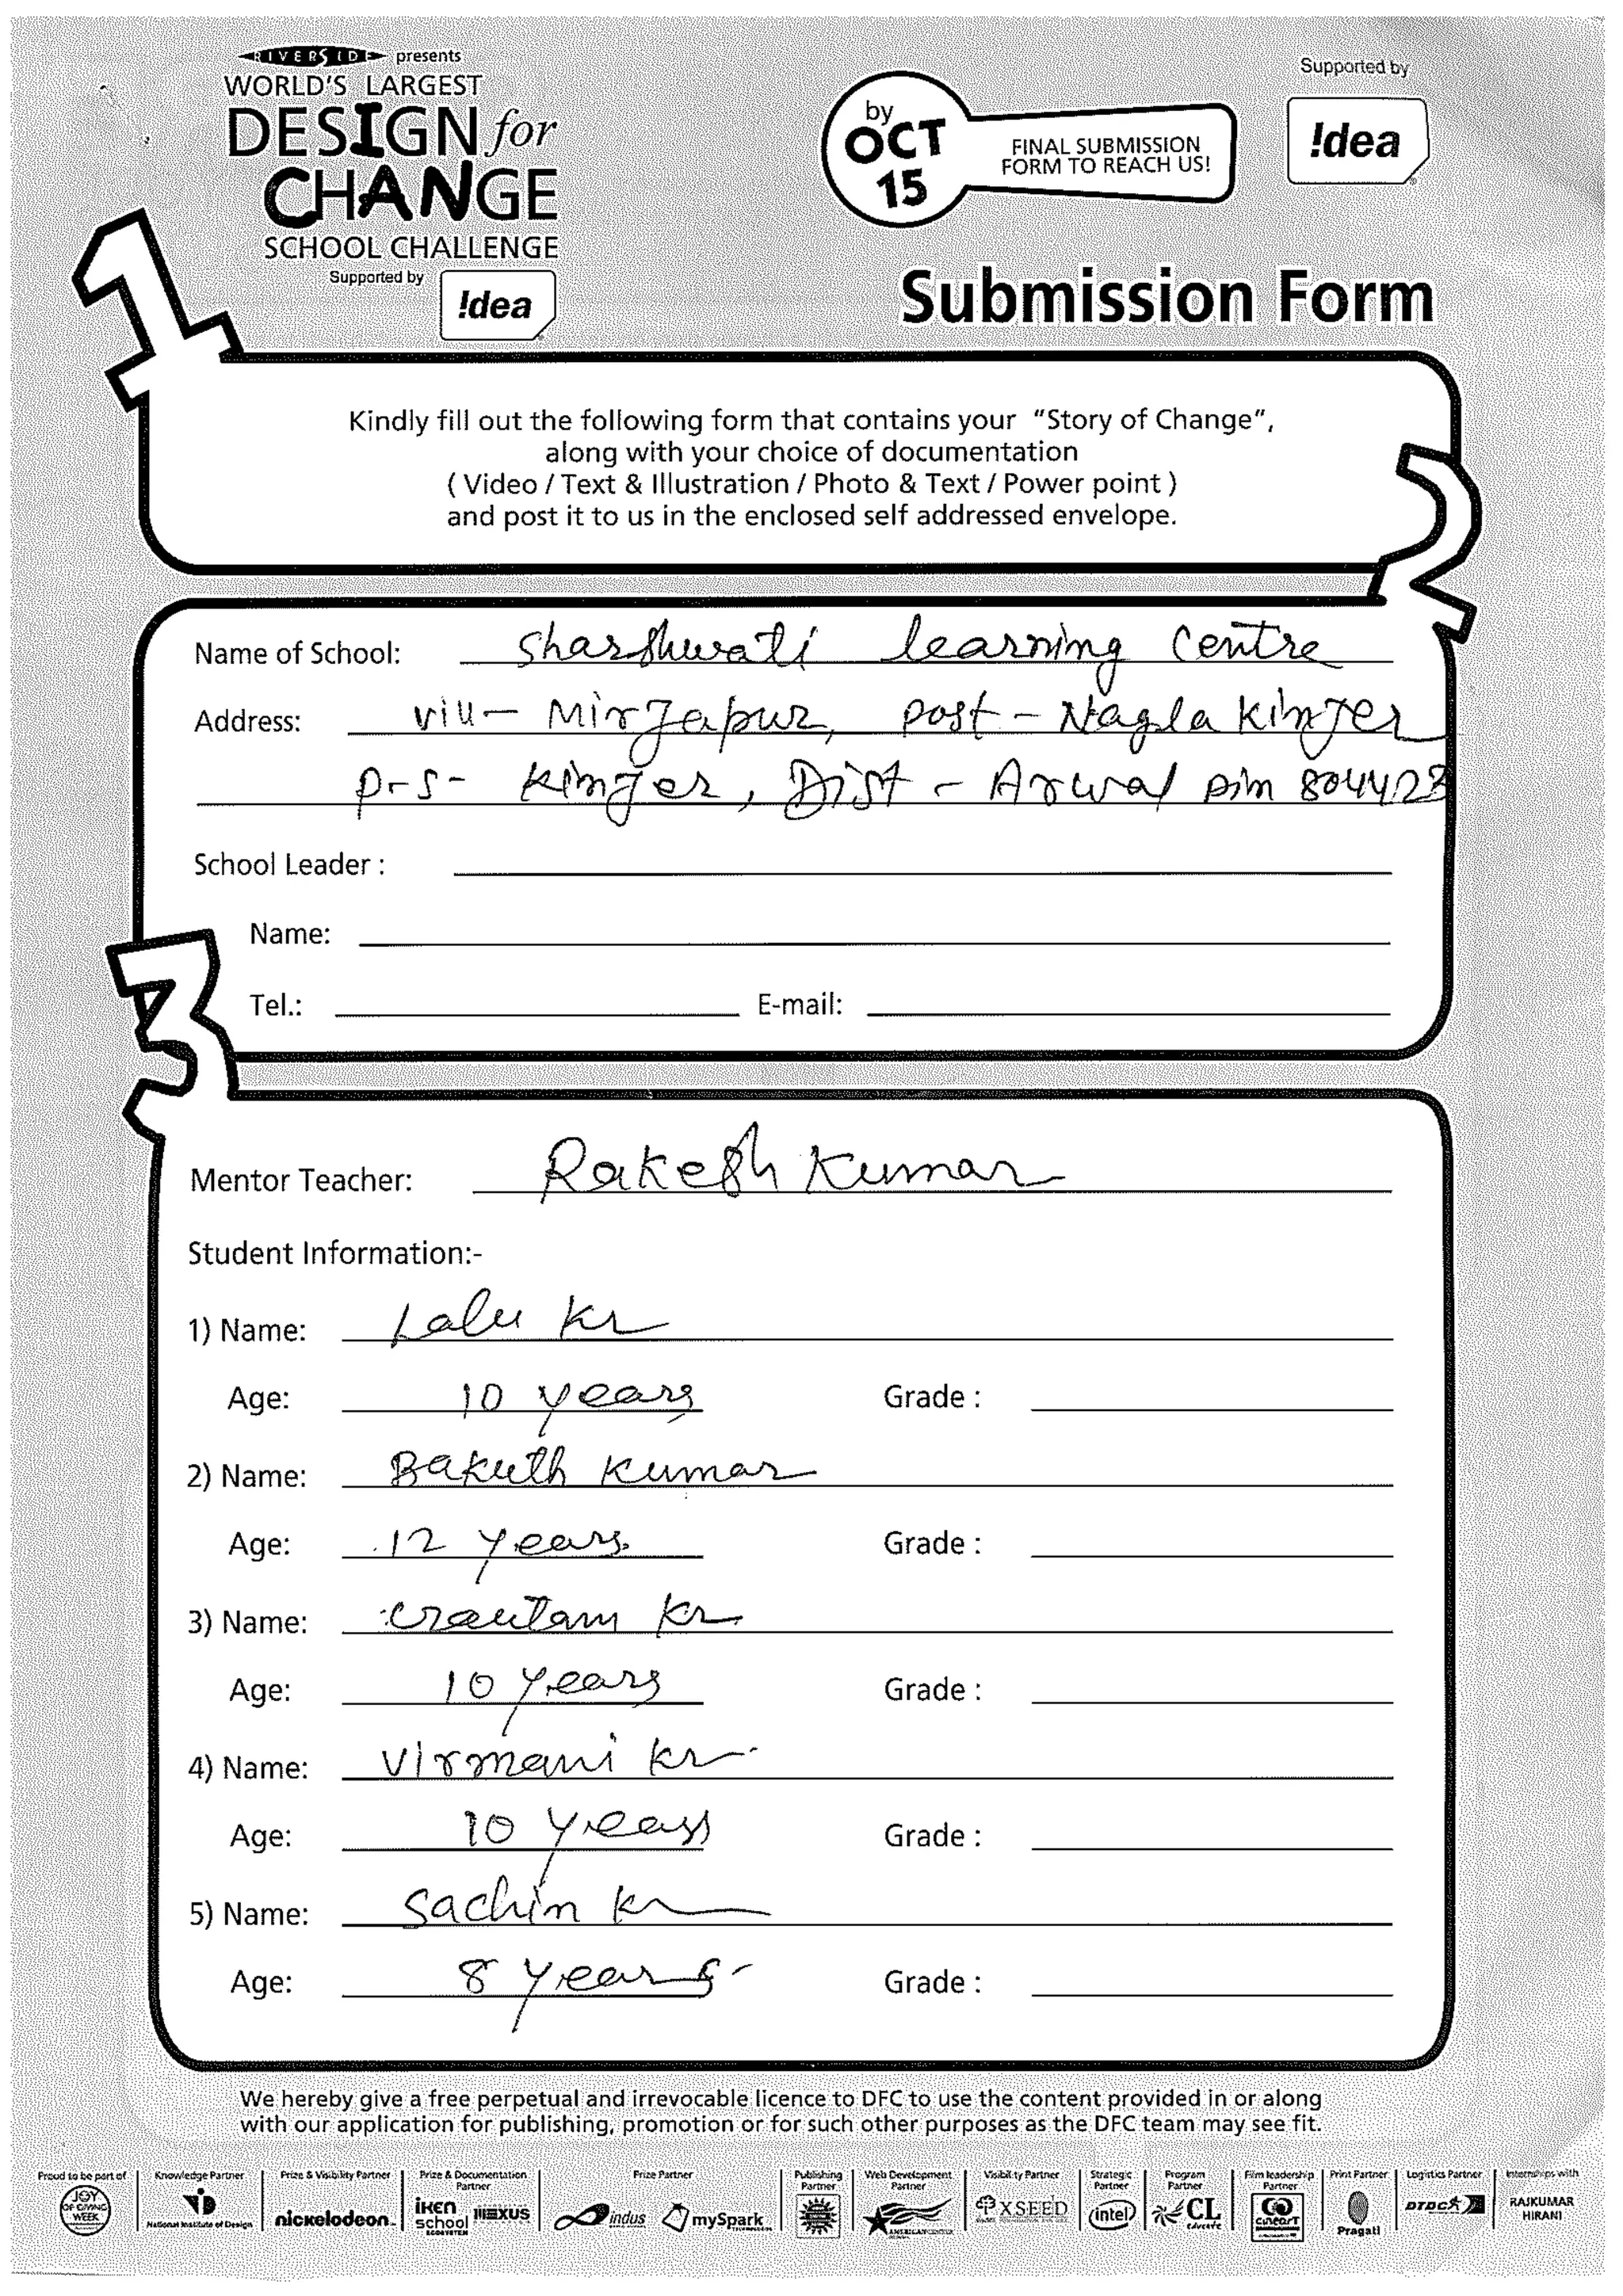 RIVERSIDE presents
WORLD'S LARGEST
DESIGN for
CHANGE
SCHOOL CHALLENGE
Supported by
!dea
by
OCT
15
FINAL SUBMISSION
FORM TO REACH US!
Supported by
!dea
Submission Form
1
Kindly fill out the following form that contains your "Story of Change",
along with your choice of documentation
( Video / Text & Illustration / Photo & Text / Power point )
and post it to us in the enclosed self addressed envelope.
2
Name of School: Sharshwati learning Centre
Address: vill- Mirzapur, post - Nagla Kinjer
p-s- Kinjer, Dist - Arwal pin 804428
School Leader :
Name:
Tel.: E-mail:
3
Mentor Teacher: Rakesh Kumar
Student Information:-
1) Name: Lalu Kr
Age: 10 years Grade :
2) Name: Bakuth Kumar
Age: 12 years Grade :
3) Name: Grautam Kr
Age: 10 years Grade :
4) Name: Virmani Kr
Age: 10 years Grade :
5) Name: Sachin Kr
Age: 8 years Grade :
We hereby give a free perpetual and irrevocable licence to DFC to use the content provided in or along
with our application for publishing, promotion or for such other purposes as the DFC team may see fit.
Proud to be part of
JOY OF GIVING WEEK
Knowledge Partner
National Institute of Design
Prize & Visibility Partner
nickelodeon
Prize & Documentation Partner
iKEN school ECOSYSTEM NEXUS
Prize Partner
indus mySpark
Publishing Partner
Web Development Partner
AMERICAN CENTER
Visibility Partner
XSEED
Strategic Partner
intel
Program Partner
CL educate
Film leadership Partner
cineart
Print Partner
Pragati
Logistics Partner
DTDC
Internships with
RAJKUMAR HIRANI